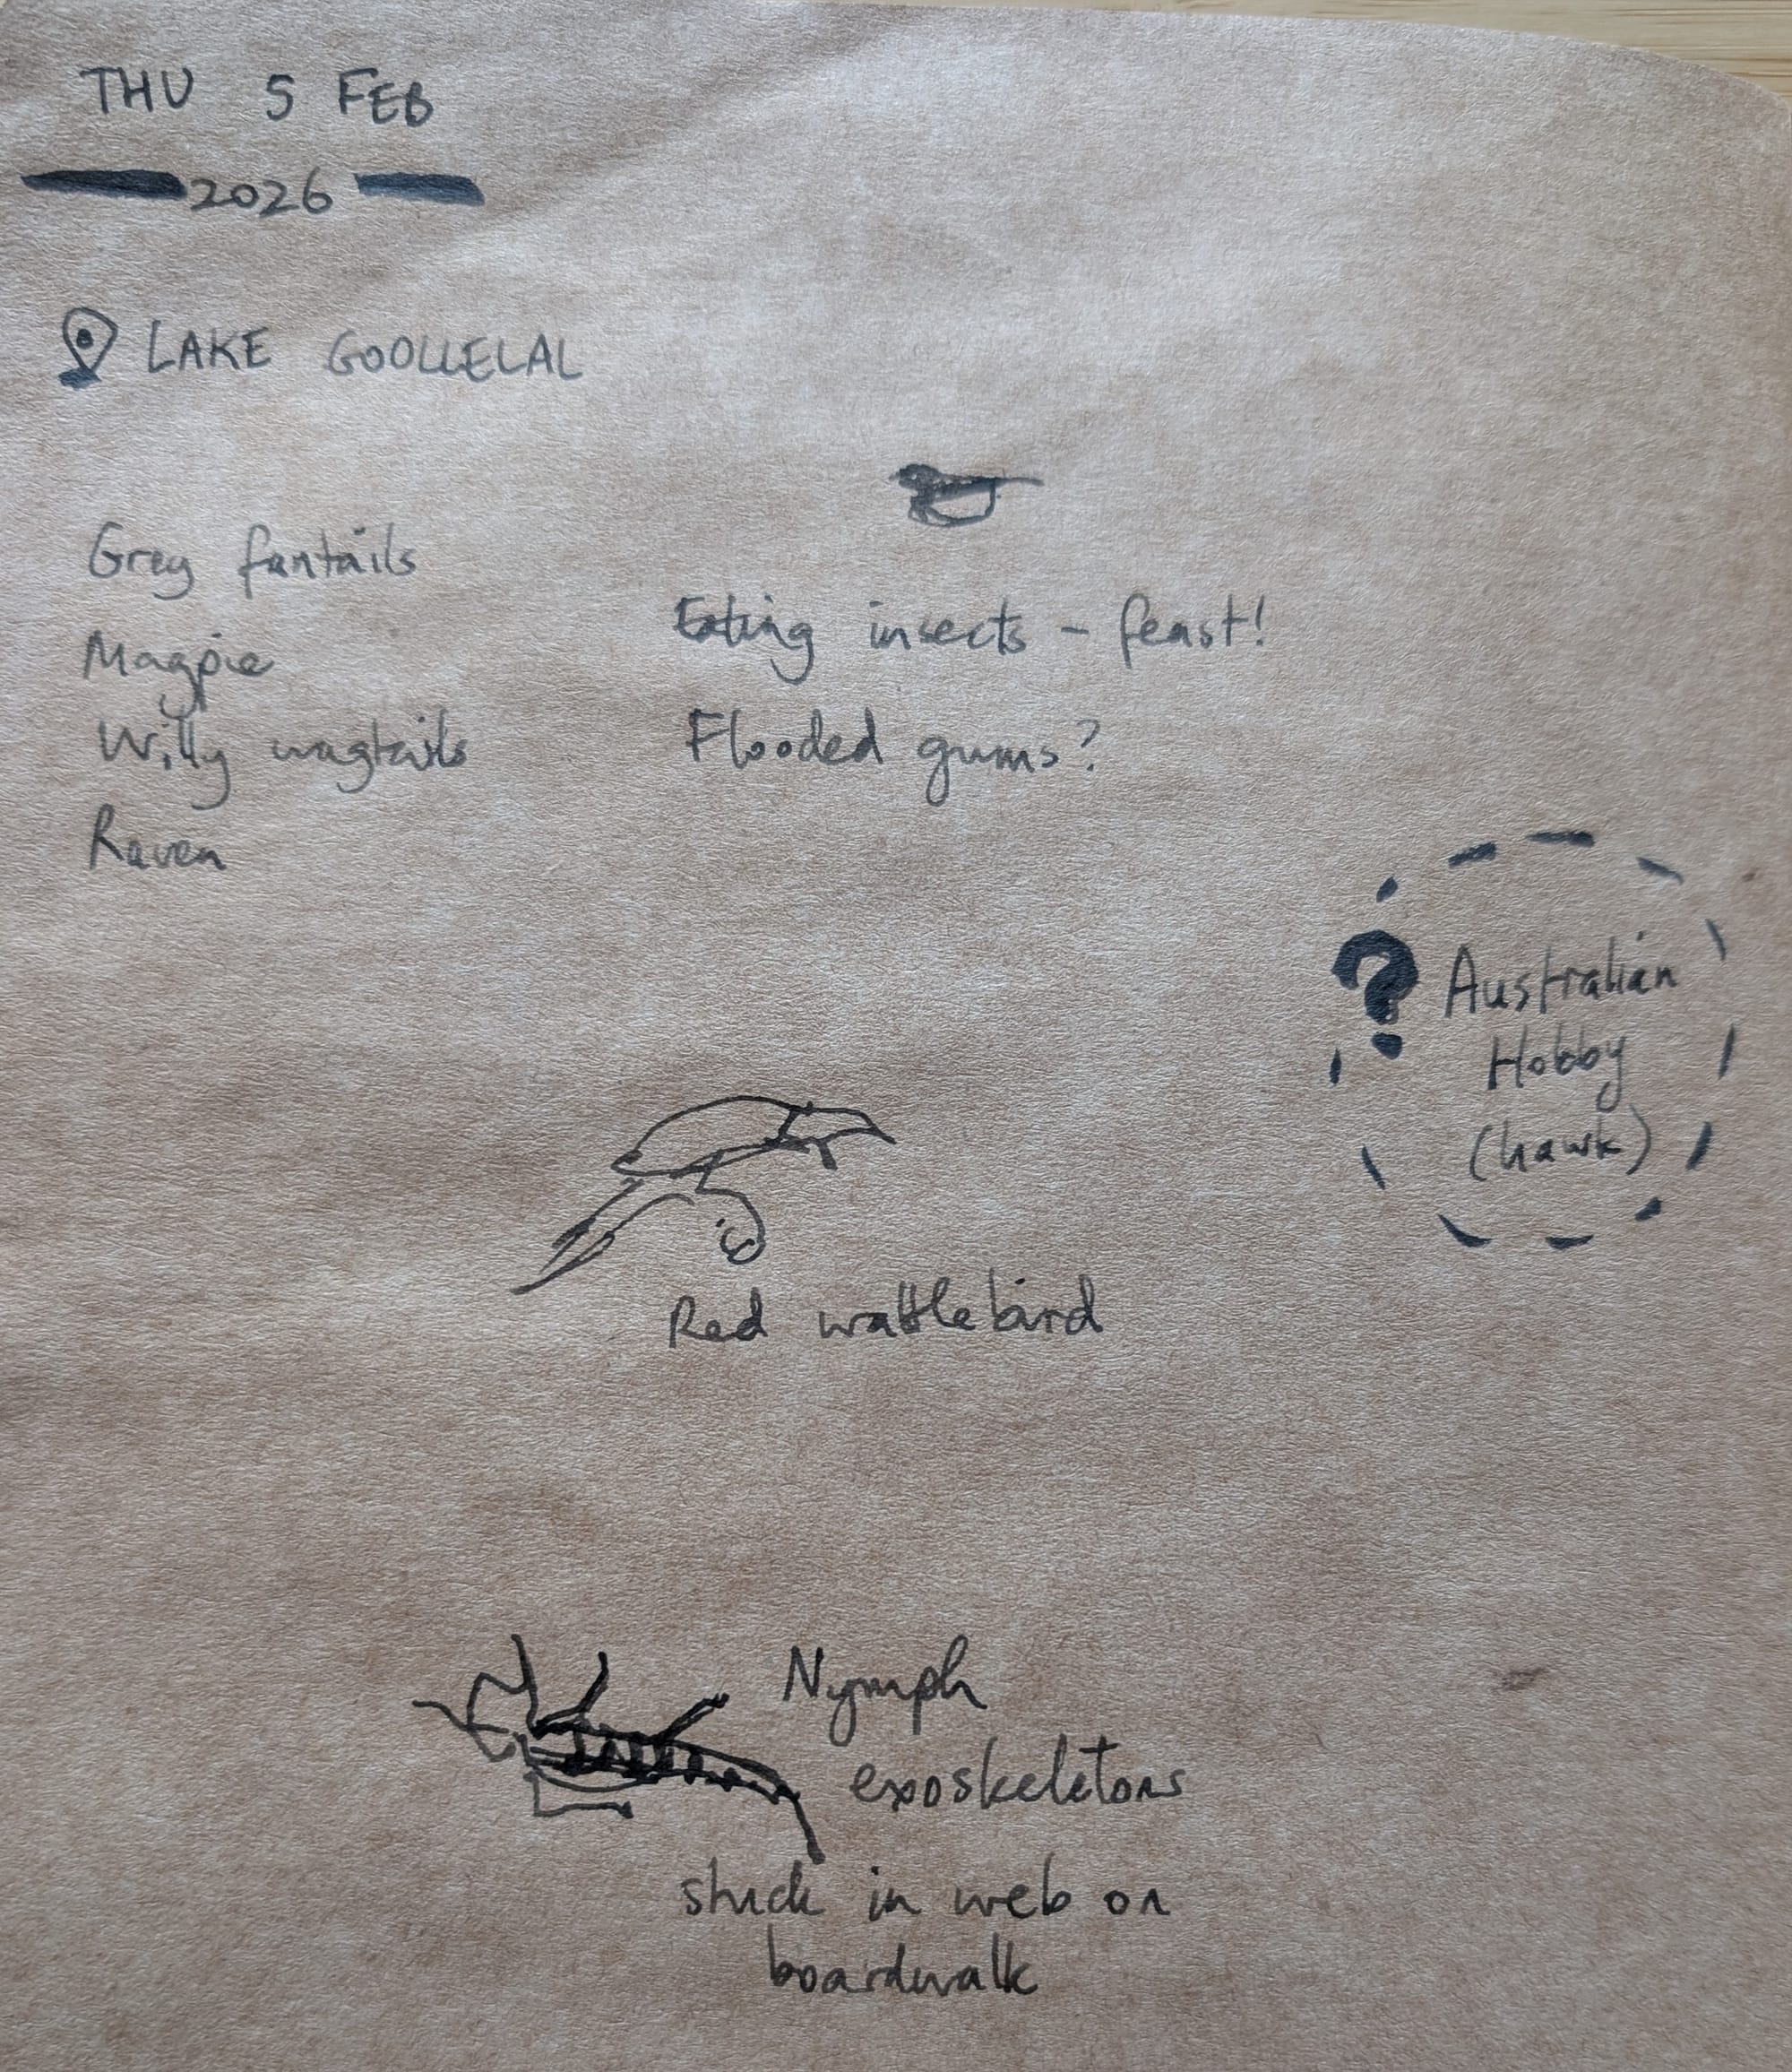 THU 5 FEB
2026
LAKE GOOLLELAL
Grey fantails
Magpie
Willy wagtails
Raven
Eating insects - feast!
Flooded gums?
? Australian
Hobby
(hawk)
Red wattlebird
Nymph
exoskeletons
stuck in web on
boardwalk